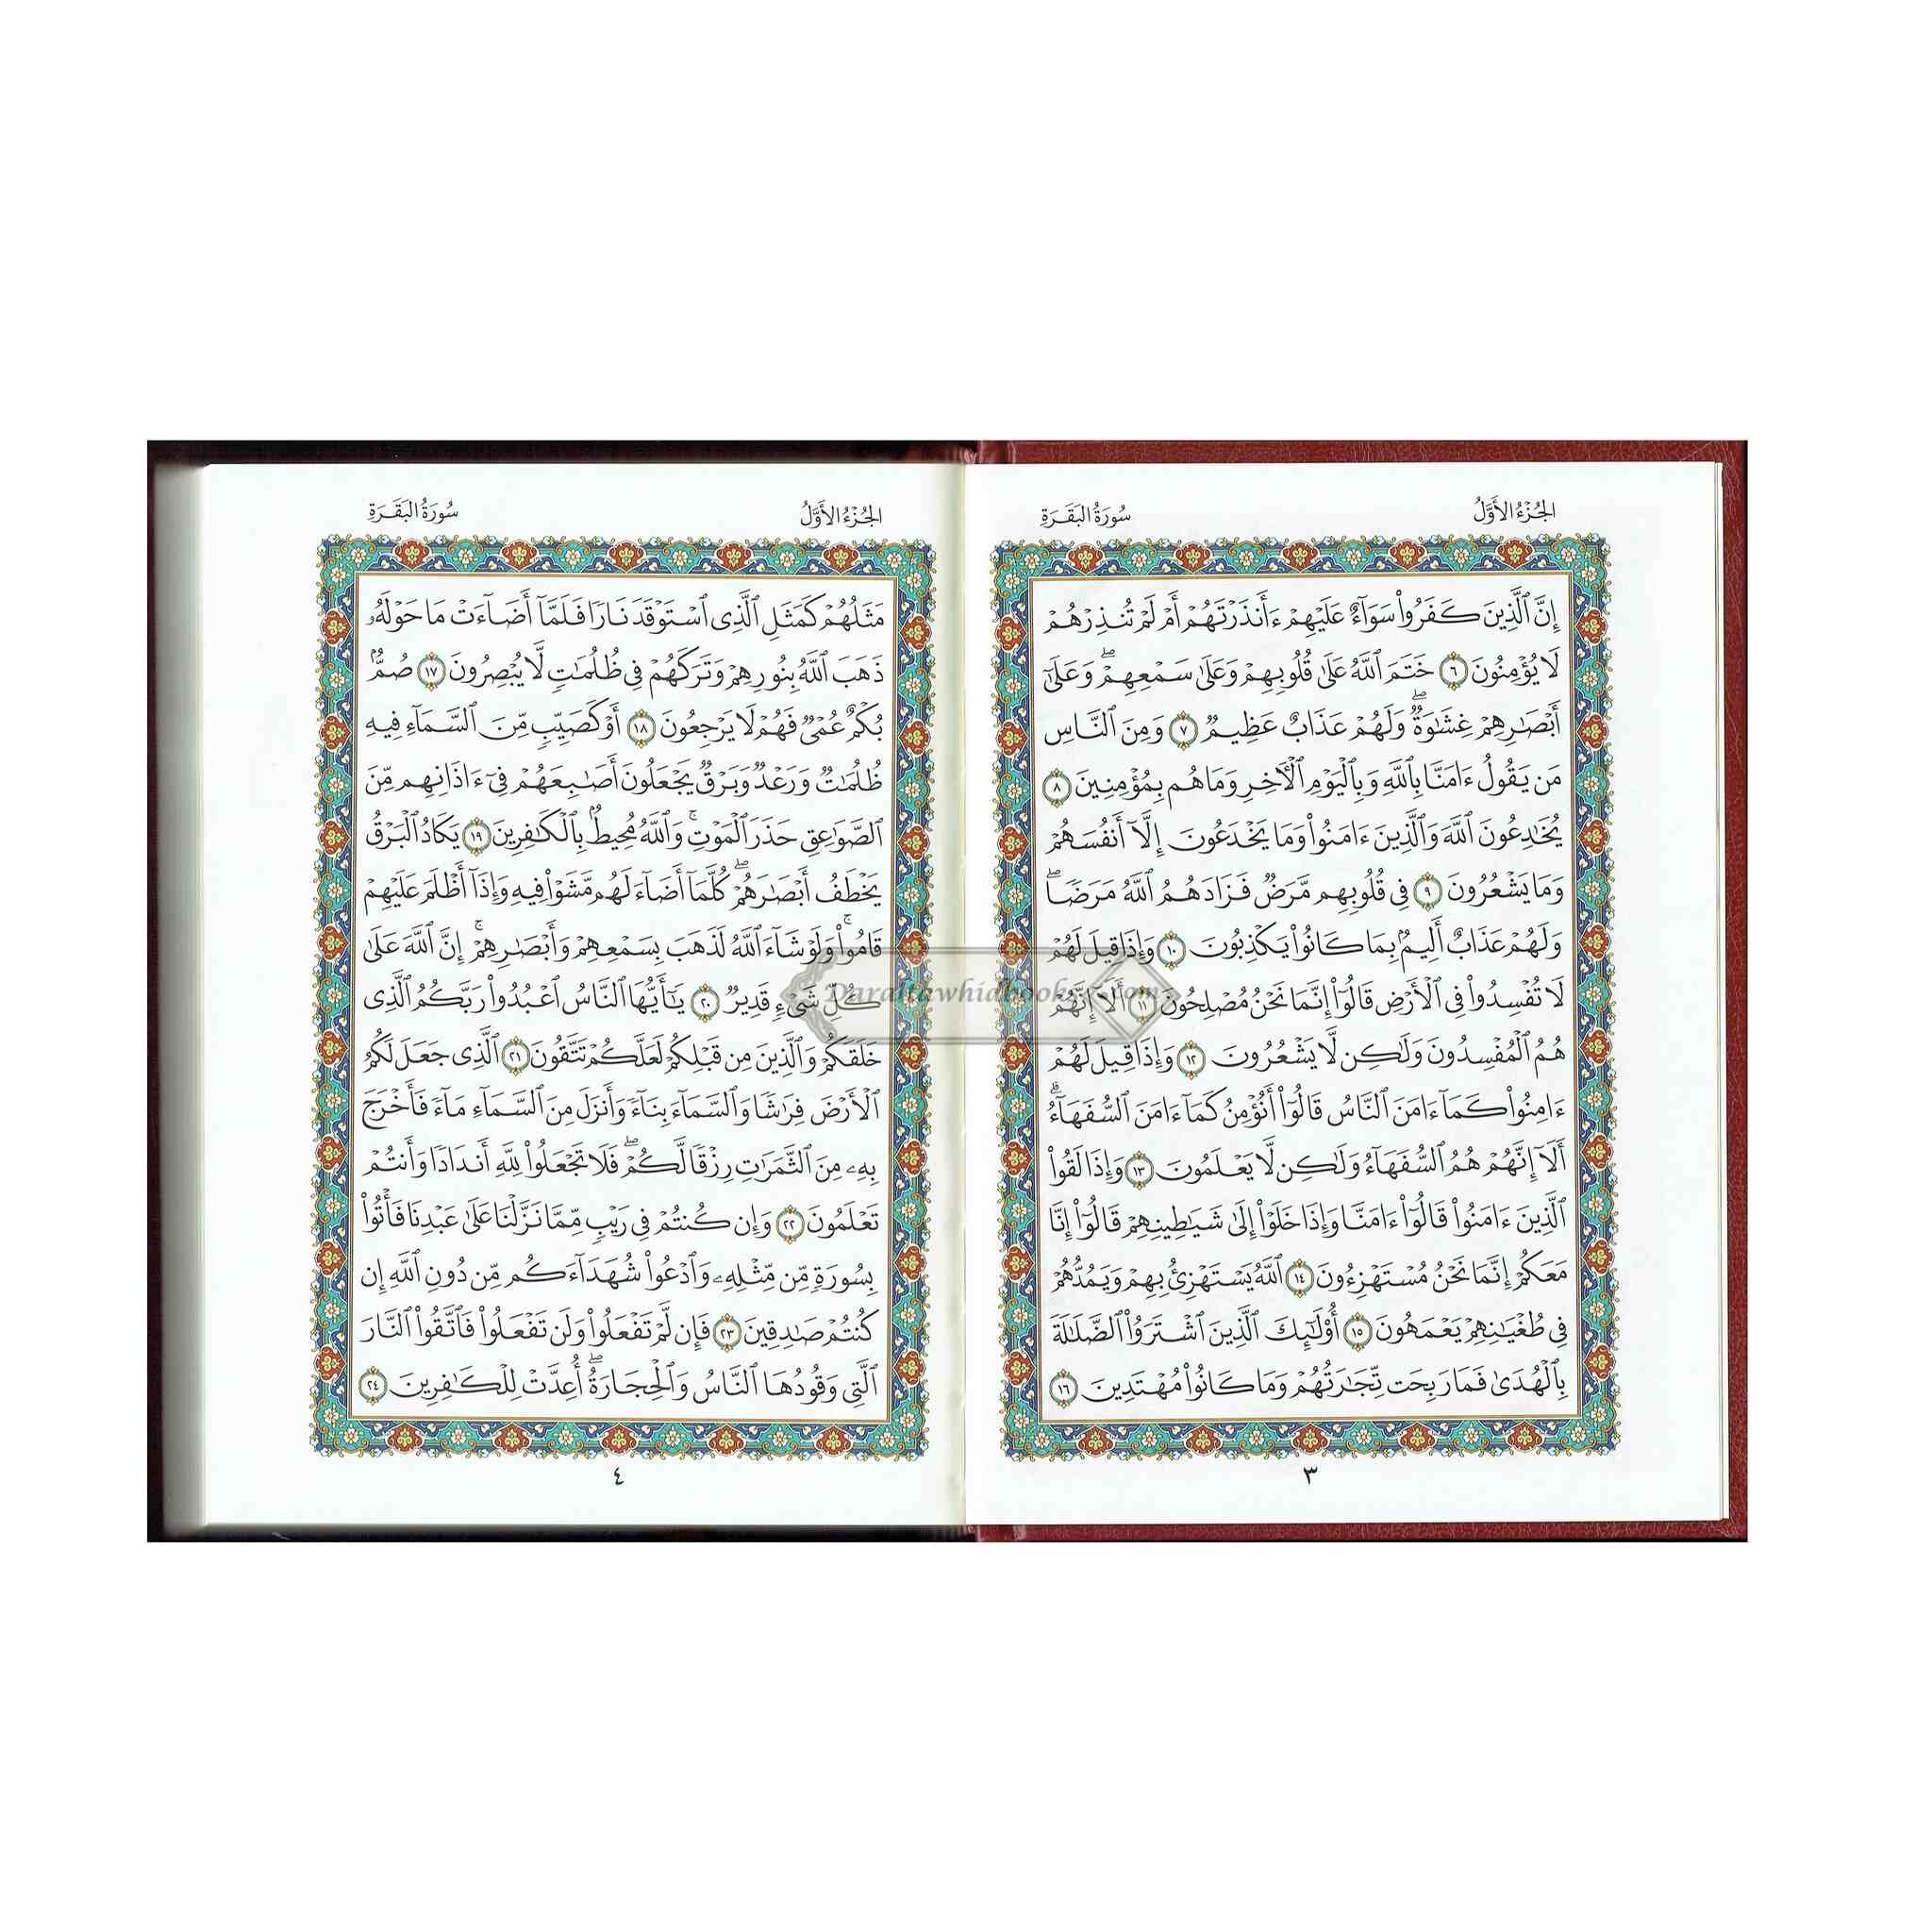 الجُزْءُ الأَوَّلُ
سُورَةُ البَقَرَةِ
إِنَّ ٱلَّذِينَ كَفَرُوا۟ سَوَآءٌ عَلَيْهِمْ ءَأَنذَرْتَهُمْ أَمْ لَمْ تُنذِرْهُمْ
لَا يُؤْمِنُونَ ٦ خَتَمَ ٱللَّهُ عَلَىٰ قُلُوبِهِمْ وَعَلَىٰ سَمْعِهِمْ ۖ وَعَلَىٰٓ
أَبْصَٰرِهِمْ غِشَٰوَةٌ ۖ وَلَهُمْ عَذَابٌ عَظِيمٌ ٧ وَمِنَ ٱلنَّاسِ
مَن يَقُولُ ءَامَنَّا بِٱللَّهِ وَبِٱلْيَوْمِ ٱلْـَٔاخِرِ وَمَا هُم بِمُؤْمِنِينَ ٨
يُخَٰدِعُونَ ٱللَّهَ وَٱلَّذِينَ ءَامَنُوا۟ وَمَا يَخْدَعُونَ إِلَّآ أَنفُسَهُمْ
وَمَا يَشْعُرُونَ ٩ فِى قُلُوبِهِم مَّرَضٌ فَزَادَهُمُ ٱللَّهُ مَرَضًا ۖ
وَلَهُمْ عَذَابٌ أَلِيمٌۢ بِمَا كَانُوا۟ يَكْذِبُونَ ١٠ وَإِذَا قِيلَ لَهُمْ
لَا تُفْسِدُوا۟ فِى ٱلْأَرْضِ قَالُوٓا۟ إِنَّمَا نَحْنُ مُصْلِحُونَ ١١ أَلَآ إِنَّهُمْ
هُمُ ٱلْمُفْسِدُونَ وَلَٰكِن لَّا يَشْعُرُونَ ١٢ وَإِذَا قِيلَ لَهُمْ
ءَامِنُوا۟ كَمَآ ءَامَنَ ٱلنَّاسُ قَالُوٓا۟ أَنُؤْمِنُ كَمَآ ءَامَنَ ٱلسُّفَهَآءُ ۗ
أَلَآ إِنَّهُمْ هُمُ ٱلسُّفَهَآءُ وَلَٰكِن لَّا يَعْلَمُونَ ١٣ وَإِذَا لَقُوا۟
ٱلَّذِينَ ءَامَنُوا۟ قَالُوٓا۟ ءَامَنَّا وَإِذَا خَلَوْا۟ إِلَىٰ شَيَٰطِينِهِمْ قَالُوٓا۟ إِنَّا
مَعَكُمْ إِنَّمَا نَحْنُ مُسْتَهْزِءُونَ ١٤ ٱللَّهُ يَسْتَهْزِئُ بِهِمْ وَيَمُدُّهُمْ
فِى طُغْيَٰنِهِمْ يَعْمَهُونَ ١٥ أُو۟لَٰٓئِكَ ٱلَّذِينَ ٱشْتَرَوُا۟ ٱلضَّلَٰلَةَ
بِٱلْهُدَىٰ فَمَا رَبِحَت تِّجَٰرَتُهُمْ وَمَا كَانُوا۟ مُهْتَدِينَ ١٦
٣
الجُزْءُ الأَوَّلُ
سُورَةُ البَقَرَةِ
مَثَلُهُمْ كَمَثَلِ ٱلَّذِى ٱسْتَوْقَدَ نَارًا فَلَمَّآ أَضَآءَتْ مَا حَوْلَهُۥ
ذَهَبَ ٱللَّهُ بِنُورِهِمْ وَتَرَكَهُمْ فِى ظُلُمَٰتٍ لَّا يُبْصِرُونَ ١٧ صُمٌّۢ
بُكْمٌ عُمْىٌ فَهُمْ لَا يَرْجِعُونَ ١٨ أَوْ كَصَيِّبٍ مِّنَ ٱلسَّمَآءِ فِيهِ
ظُلُمَٰتٌ وَرَعْدٌ وَبَرْقٌ يَجْعَلُونَ أَصَٰبِعَهُمْ فِىٓ ءَاذَانِهِم مِّنَ
ٱلصَّوَٰعِقِ حَذَرَ ٱلْمَوْتِ ۚ وَٱللَّهُ مُحِيطٌۢ بِٱلْكَٰفِرِينَ ١٩ يَكَادُ ٱلْبَرْقُ
يَخْطَفُ أَبْصَٰرَهُمْ ۖ كُلَّمَآ أَضَآءَ لَهُم مَّشَوْا۟ فِيهِ وَإِذَآ أَظْلَمَ عَلَيْهِمْ
قَامُوا۟ ۚ وَلَوْ شَآءَ ٱللَّهُ لَذَهَبَ بِسَمْعِهِمْ وَأَبْصَٰرِهِمْ ۚ إِنَّ ٱللَّهَ عَلَىٰ
كُلِّ شَىْءٍ قَدِيرٌ ٢٠ يَٰٓأَيُّهَا ٱلنَّاسُ ٱعْبُدُوا۟ رَبَّكُمُ ٱلَّذِى
خَلَقَكُمْ وَٱلَّذِينَ مِن قَبْلِكُمْ لَعَلَّكُمْ تَتَّقُونَ ٢١ ٱلَّذِى جَعَلَ لَكُمُ
ٱلْأَرْضَ فِرَٰشًا وَٱلسَّمَآءَ بِنَآءً وَأَنزَلَ مِنَ ٱلسَّمَآءِ مَآءً فَأَخْرَجَ
بِهِۦ مِنَ ٱلثَّمَرَٰتِ رِزْقًا لَّكُمْ ۖ فَلَا تَجْعَلُوا۟ لِلَّهِ أَندَادًا وَأَنتُمْ
تَعْلَمُونَ ٢٢ وَإِن كُنتُمْ فِى رَيْبٍ مِّمَّا نَزَّلْنَا عَلَىٰ عَبْدِنَا فَأْتُوا۟
بِسُورَةٍ مِّن مِّثْلِهِۦ وَٱدْعُوا۟ شُهَدَآءَكُم مِّن دُونِ ٱللَّهِ إِن
كُنتُمْ صَٰدِقِينَ ٢٣ فَإِن لَّمْ تَفْعَلُوا۟ وَلَن تَفْعَلُوا۟ فَٱتَّقُوا۟ ٱلنَّارَ
ٱلَّتِى وَقُودُهَا ٱلنَّاسُ وَٱلْحِجَارَةُ ۖ أُعِدَّتْ لِلْكَٰفِرِينَ ٢٤
٤
Daraltawhidbooks.com